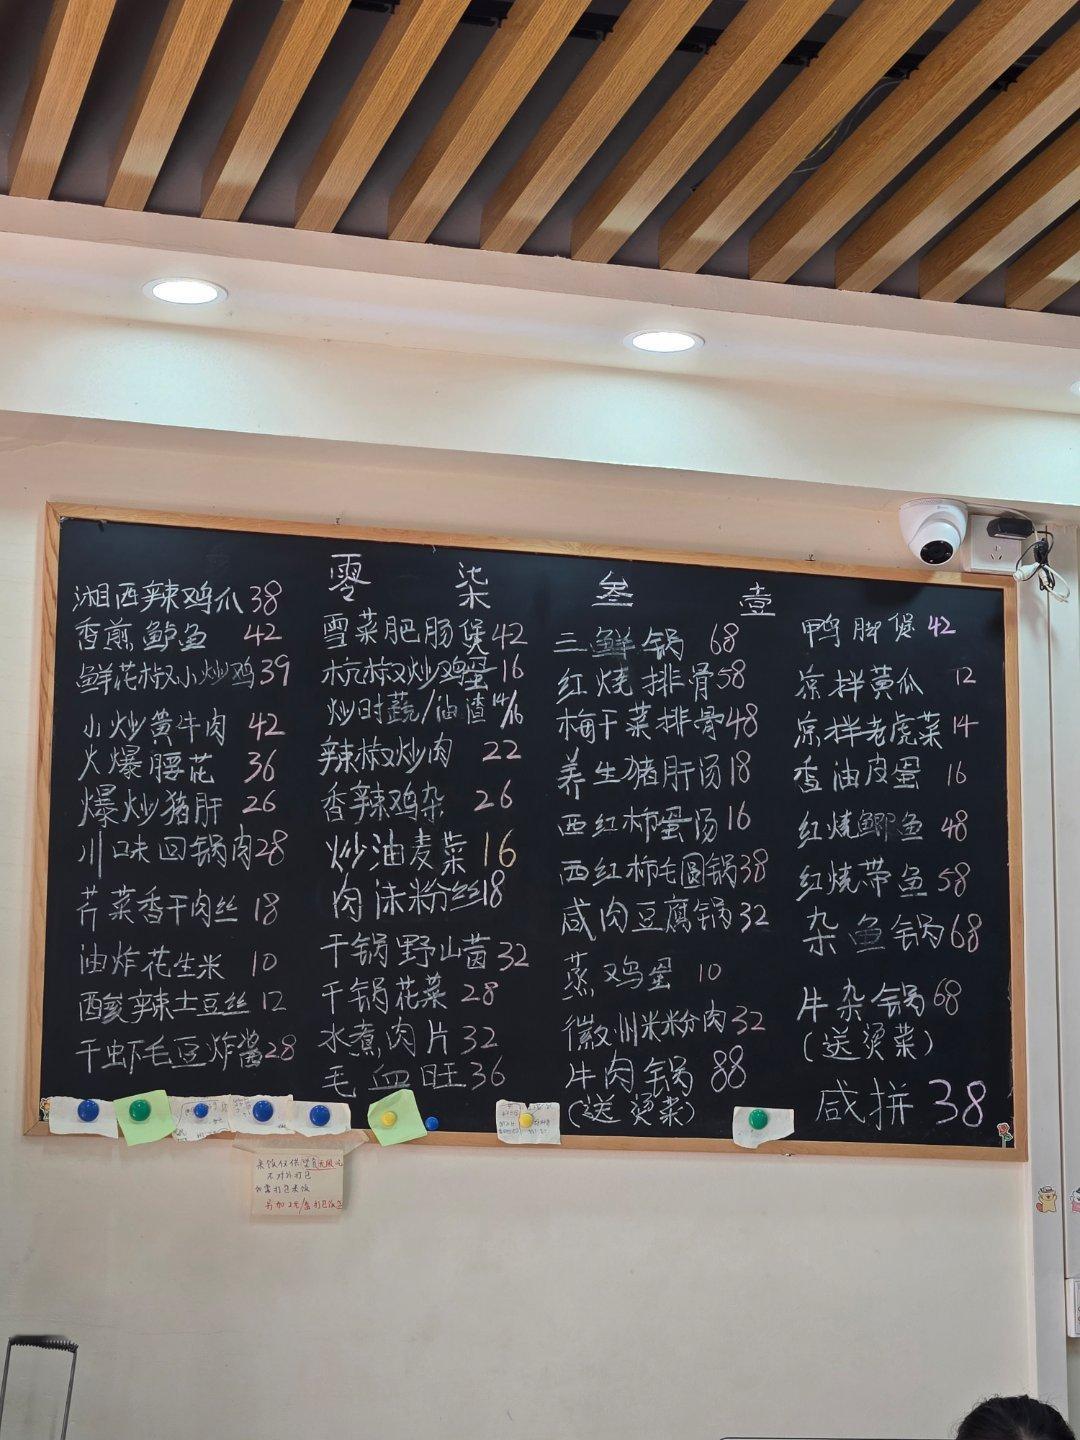 零柒叁壹
湘西辣鸡爪38
香煎鲈鱼 42
鲜花椒小炒鸡39
小炒黄牛肉 42
火爆腰花 36
爆炒猪肝 26
川味回锅肉28
芹菜香干肉丝 18
油炸花生米 10
酸辣土豆丝 12
干虾毛豆炸酱28
雪菜肥肠煲42
杭椒炒鸡蛋16
炒时蔬/油渣14/16
辣椒炒肉 22
香辣鸡杂 26
炒油麦菜 16
肉沫粉丝18
干锅野山菌32
干锅花菜 28
水煮肉片 32
毛血旺36
三鲜锅 68
红烧排骨58
梅干菜排骨48
养生猪肝汤18
西红柿蛋汤16
西红柿毛圆锅38
咸肉豆腐锅32
蒸鸡蛋 10
徽州米粉肉32
牛肉锅 88
(送烫菜)
鸭脚煲 42
凉拌黄瓜 12
凉拌老虎菜 14
香油皮蛋 16
红烧鲫鱼 48
红烧带鱼 58
杂鱼锅68
牛杂锅68
(送烫菜)
咸拼 38
不对外打包
如需打包米饭